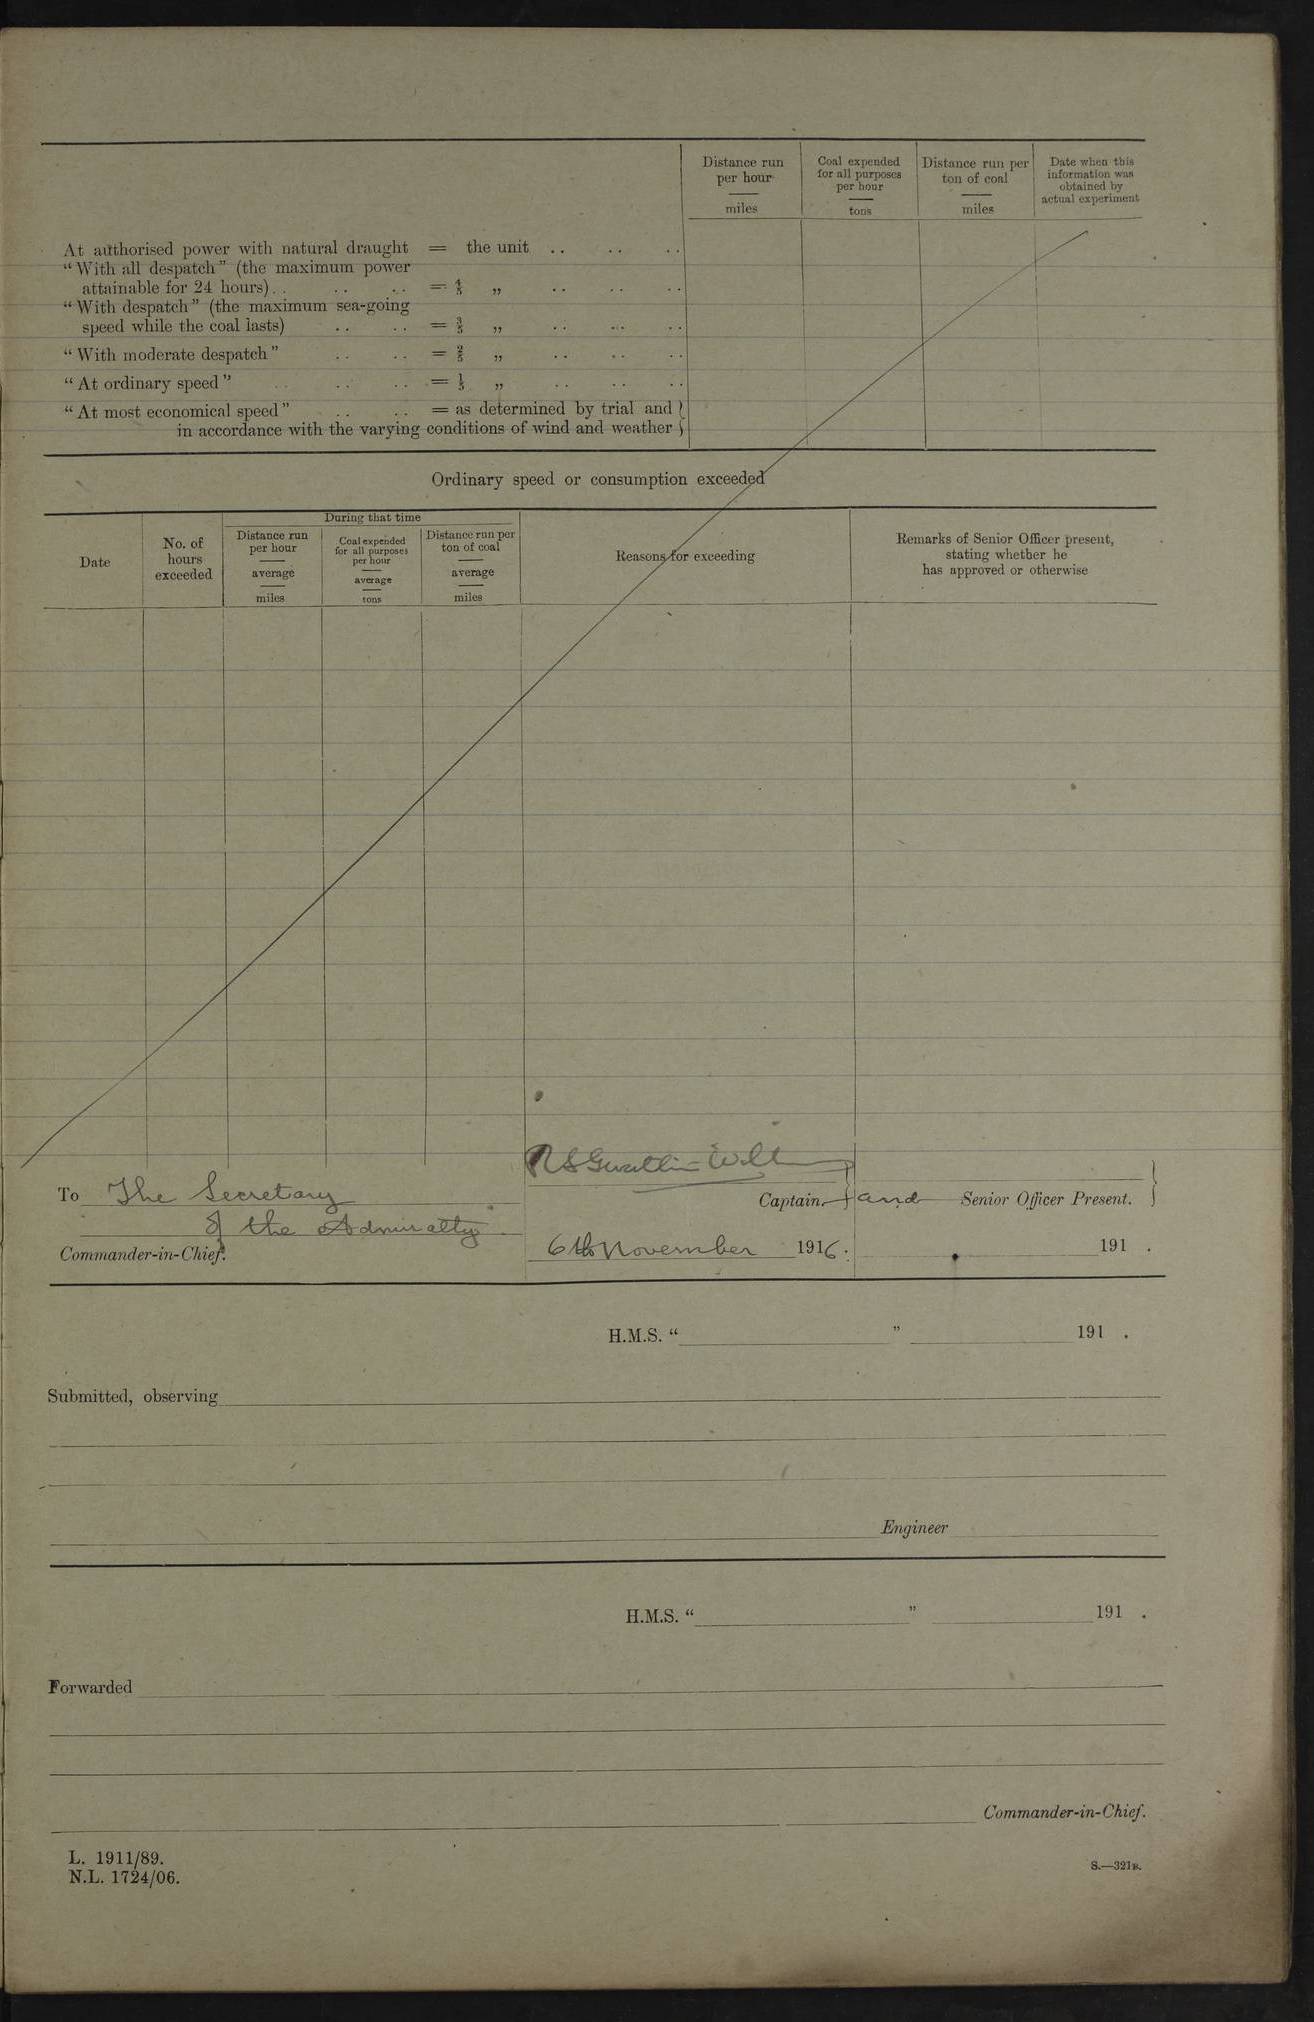 Distance run per hour miles
Coal expended for all purposes per hour tons
Distance run per ton of coal miles
Date when this information was obtained by actual experiment
At authorised power with natural draught = the unit .. .. ..
"With all despatch" (the maximum power
attainable for 24 hours) .. .. .. = 4/5 „ .. .. ..
"With despatch" (the maximum sea-going
speed while the coal lasts) .. .. = 3/5 „ .. .. ..
"With moderate despatch" .. .. = 2/5 „ .. .. ..
"At ordinary speed" .. .. .. = 1/5 „ .. .. ..
"At most economical speed" .. .. = as determined by trial and }
in accordance with the varying conditions of wind and weather }
Ordinary speed or consumption exceeded
During that time
Date
No. of hours exceeded
Distance run per hour average miles
Coal expended for all purposes per hour average tons
Distance run per ton of coal average miles
Reasons for exceeding
Remarks of Senior Officer present, stating whether he has approved or otherwise
To The Secretary
Captain and Senior Officer Present. }
of the Admiralty.
Commander-in-Chief.
6th November 1916.
191 .
H.M.S. " " 191 .
Submitted, observing
Engineer
H.M.S. " " 191 .
Forwarded
Commander-in-Chief.
L. 1911/89.
N.L. 1724/06.
S.—321B.